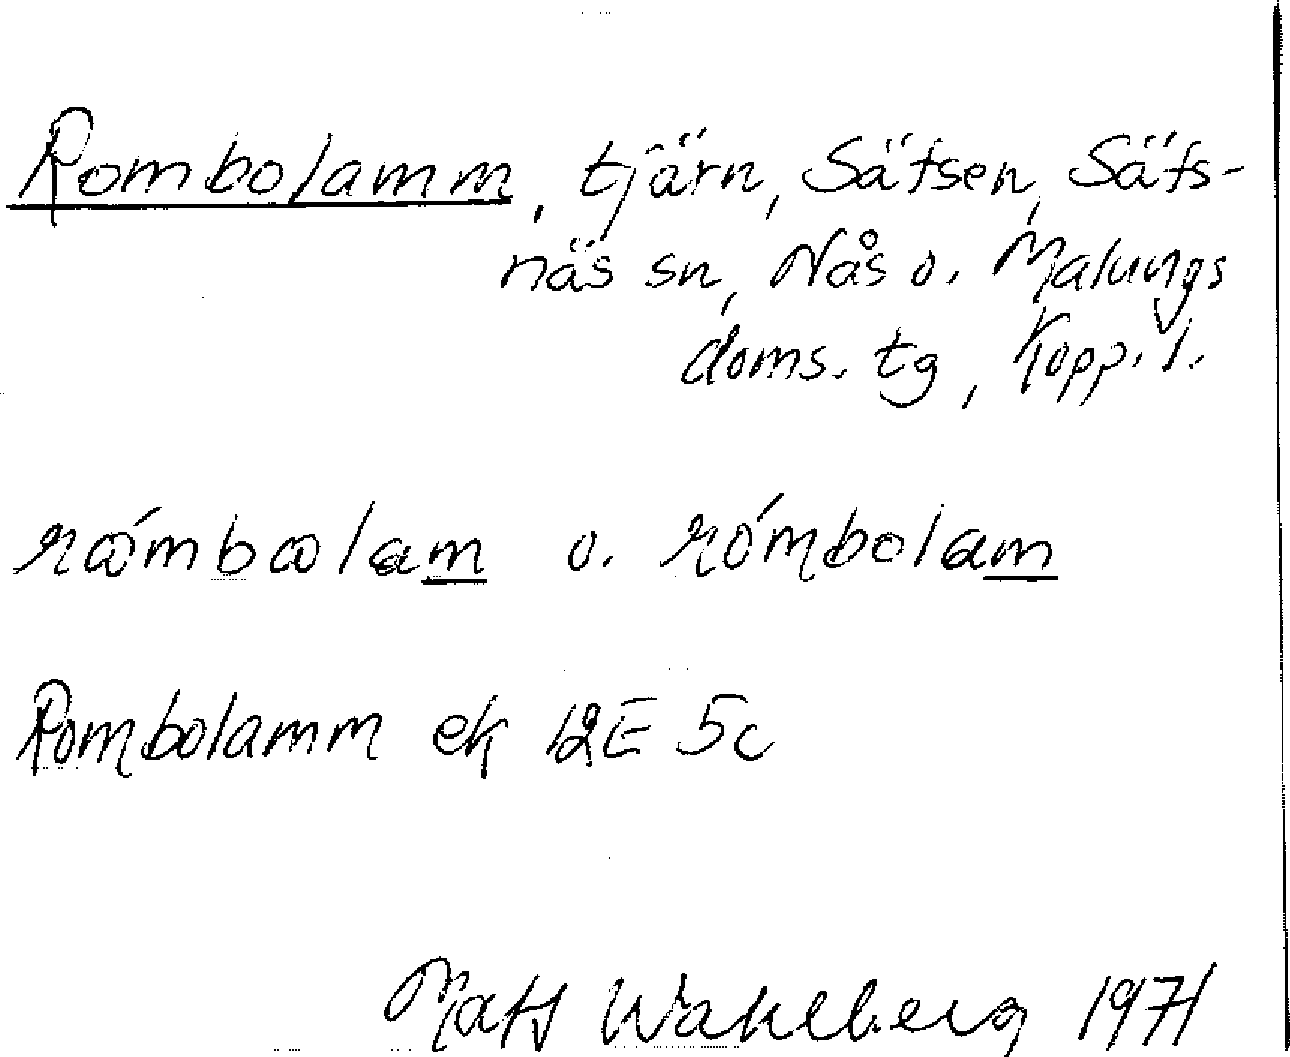 Rombolamm, tjärn, Sätsen, Säfs-
näs sn, Nås o. Malungs
doms. tg, Kopp. l.
rǿmbωlam o. rómbolam
Rombolamm ek 12E 5c
Mats Wahlberg 1971